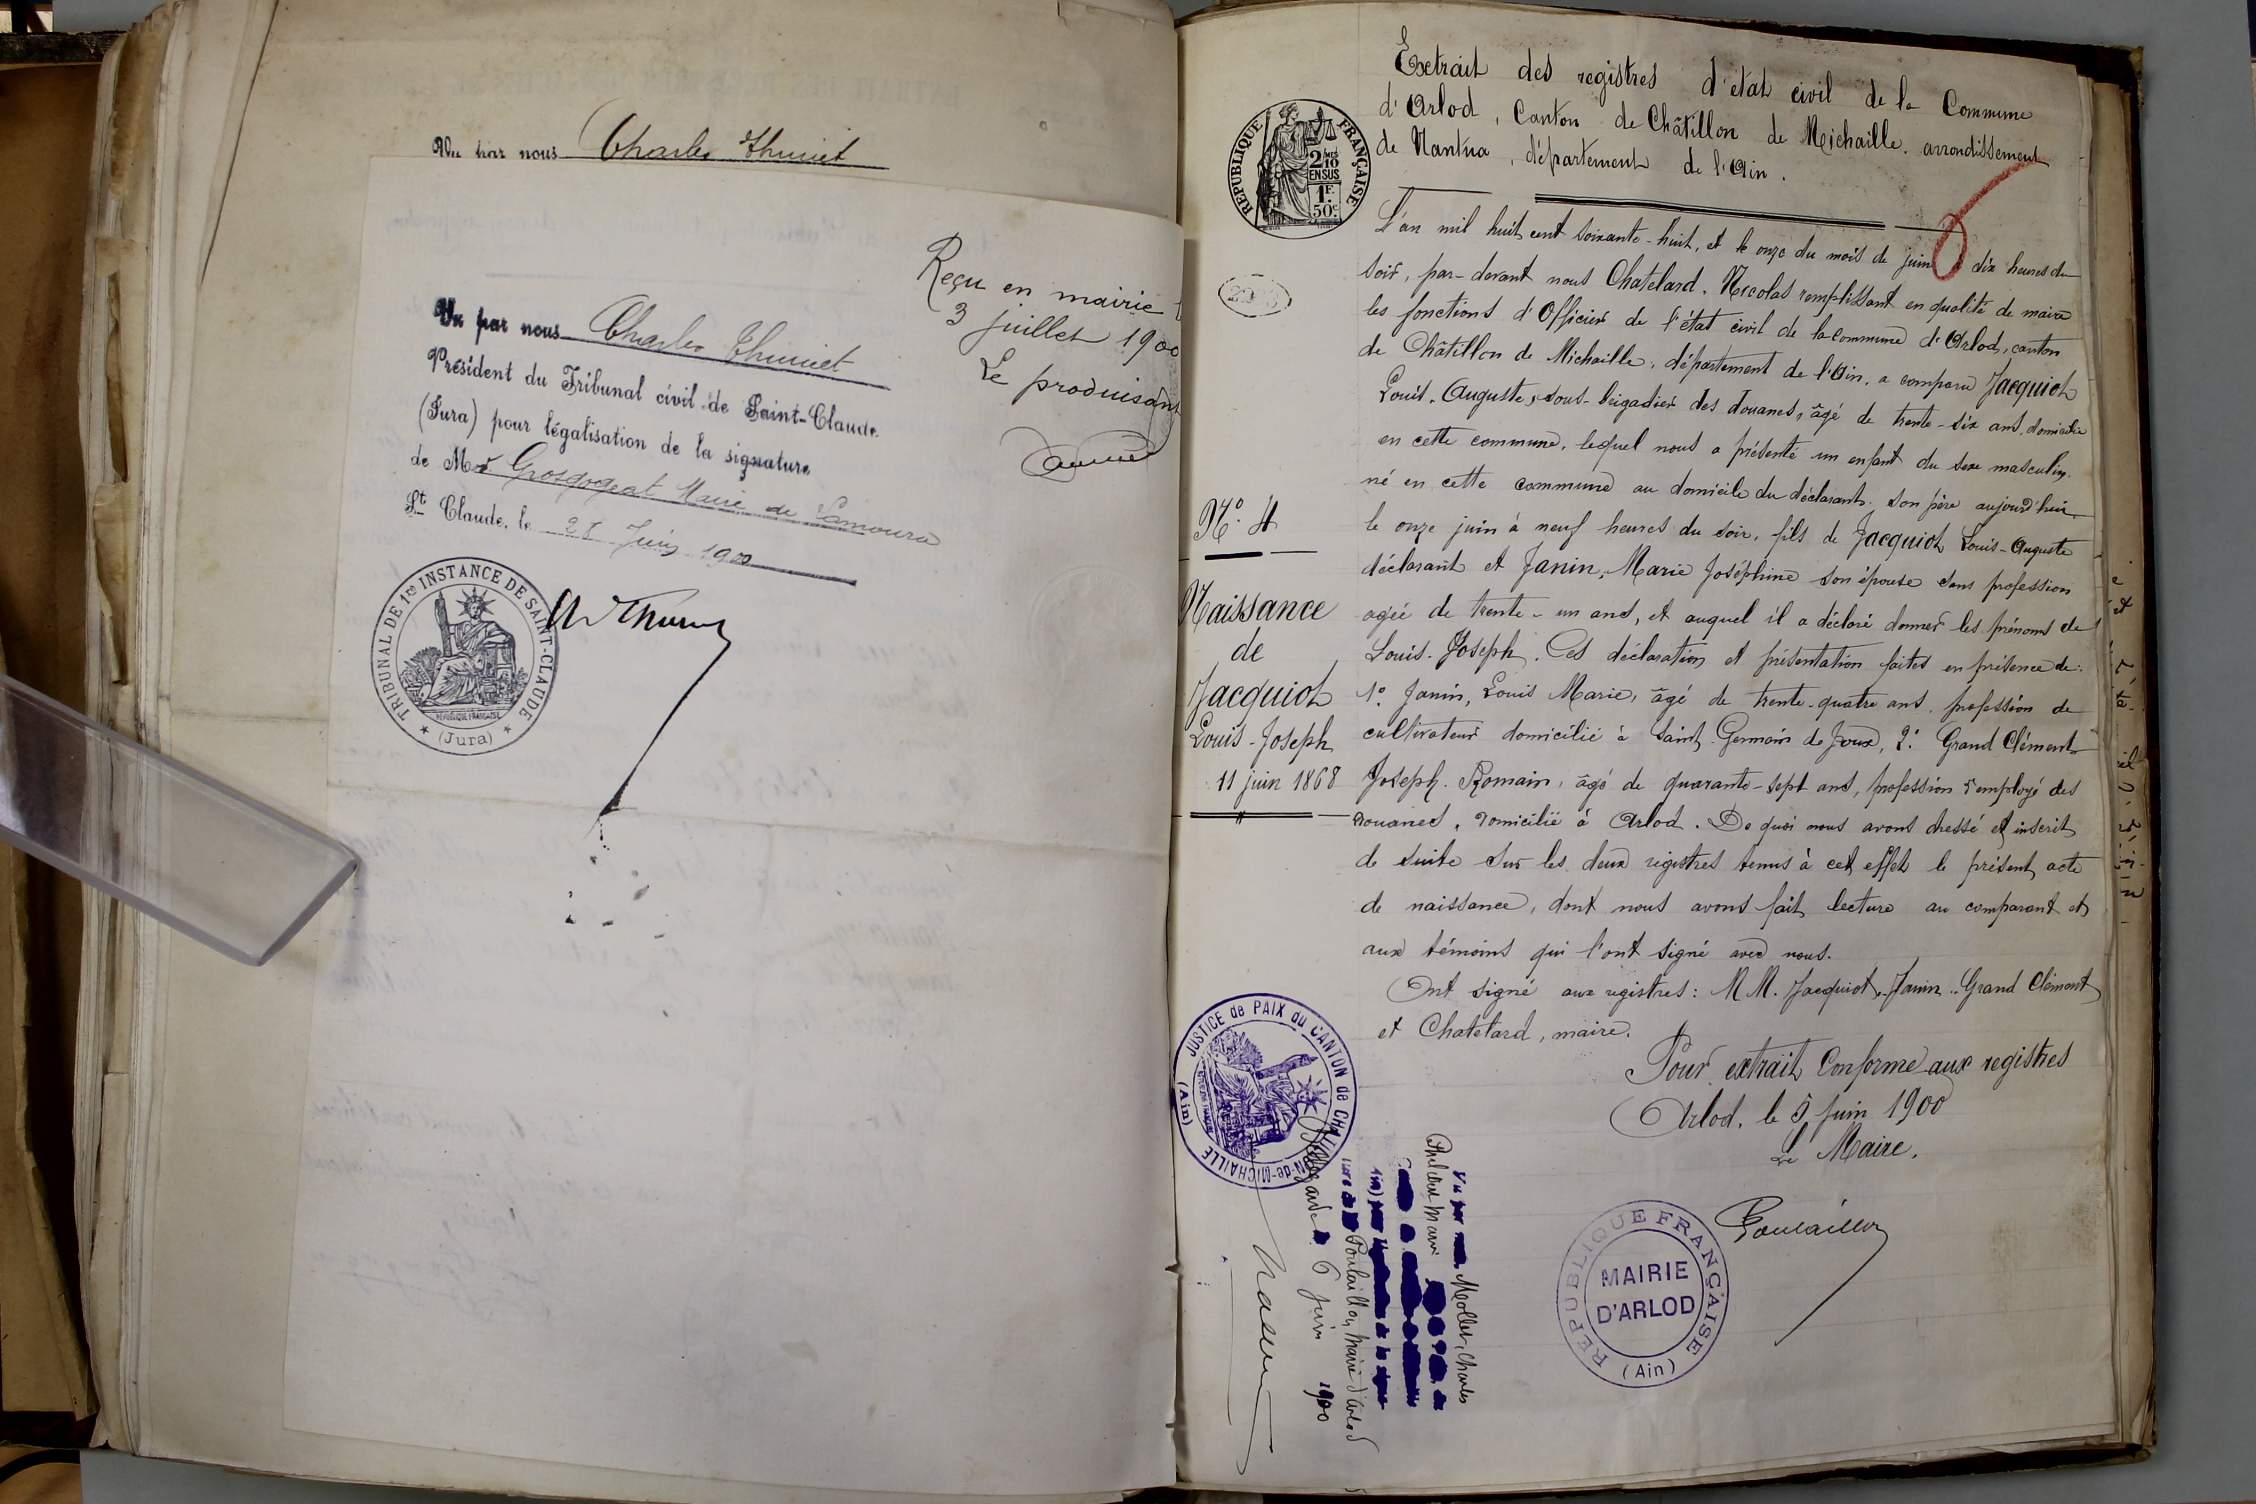 Vu par nous Charles Thuriet
Vu par nous Charles Thuriet
Président du Tribunal civil de Saint-Claude
(Jura) pour légalisation de la signature
de Mr Grosgogeat Maire de Lamoura
St Claude, le 28 Juin 1900
TRIBUNAL DE 1re INSTANCE DE SAINT-CLAUDE
RÉPUBLIQUE FRANÇAISE
(Jura)
Reçu en mairie
3 juillet 1900
Le produisant
Extrait des registres d'état civil de la Commune
d'Arlod, Canton de Châtillon de Michaille, arrondissement
de Nantua, département de l'Ain.
RÉPUBLIQUE FRANÇAISE
2/10 EN SUS
1F. 50c
6
L'an mil huit cent soixante-huit, et le onze du mois de juin à dix heures du
soir, par-devant nous Chatelard, Nicolas remplissant en qualité de maire
les fonctions d'Officier de l'état civil de la commune d'Arlod, canton
de Châtillon de Michaille, département de l'Ain, a comparu Jacquiot
Louis, Auguste, sous-brigadier des douanes, âgé de trente-six ans, domicilié
en cette commune, lequel nous a présenté un enfant du sexe masculin
né en cette commune au domicile du déclarant son père aujourd'hui
le onze juin à neuf heures du soir, fils de Jacquiot Louis-Auguste
déclarant et Janin, Marie Joséphine son épouse sans profession
agée de trente-un ans, et auquel il a déclaré donner les prénoms de
Louis-Joseph. Ces déclaration et présentation faites en présence de:
1° Janin, Louis Marie, âgé de trente-quatre ans, profession de
cultivateur domicilié à Saint Germain de Joux, 2° Grand Clément
Joseph-Romain, âgé de quarante-sept ans, profession d'employé des
douanes, domicilié à Arlod. De quoi nous avons dressé et inscrit
de suite sur les deux registres tenus à cet effet le présent acte
de naissance, dont nous avons fait lecture au comparant et
aux témoins qui l'ont signé avec nous.
Ont signé aux registres: MM. Jacquiot, Janin, Grand Clément
et Chatelard, maire.
N° 4
Naissance
de
Jacquiot
Louis-Joseph
11 juin 1868
Pour extrait Conforme aux registres
Arlod, le 5 juin 1900
Le Maire.
Poulaillon
RÉPUBLIQUE FRANÇAISE
MAIRIE
D'ARLOD
(Ain)
JUSTICE de PAIX du CANTON de CHATILLON-de-MICHAILLE
(Ain)
Vu par nous Mollet, Charles
Philibert Marie
Ain) pour légalisation de la signa-
ture de M Poulaillon, Maire d'Arlod
Bellegarde le 6 Juin 1900